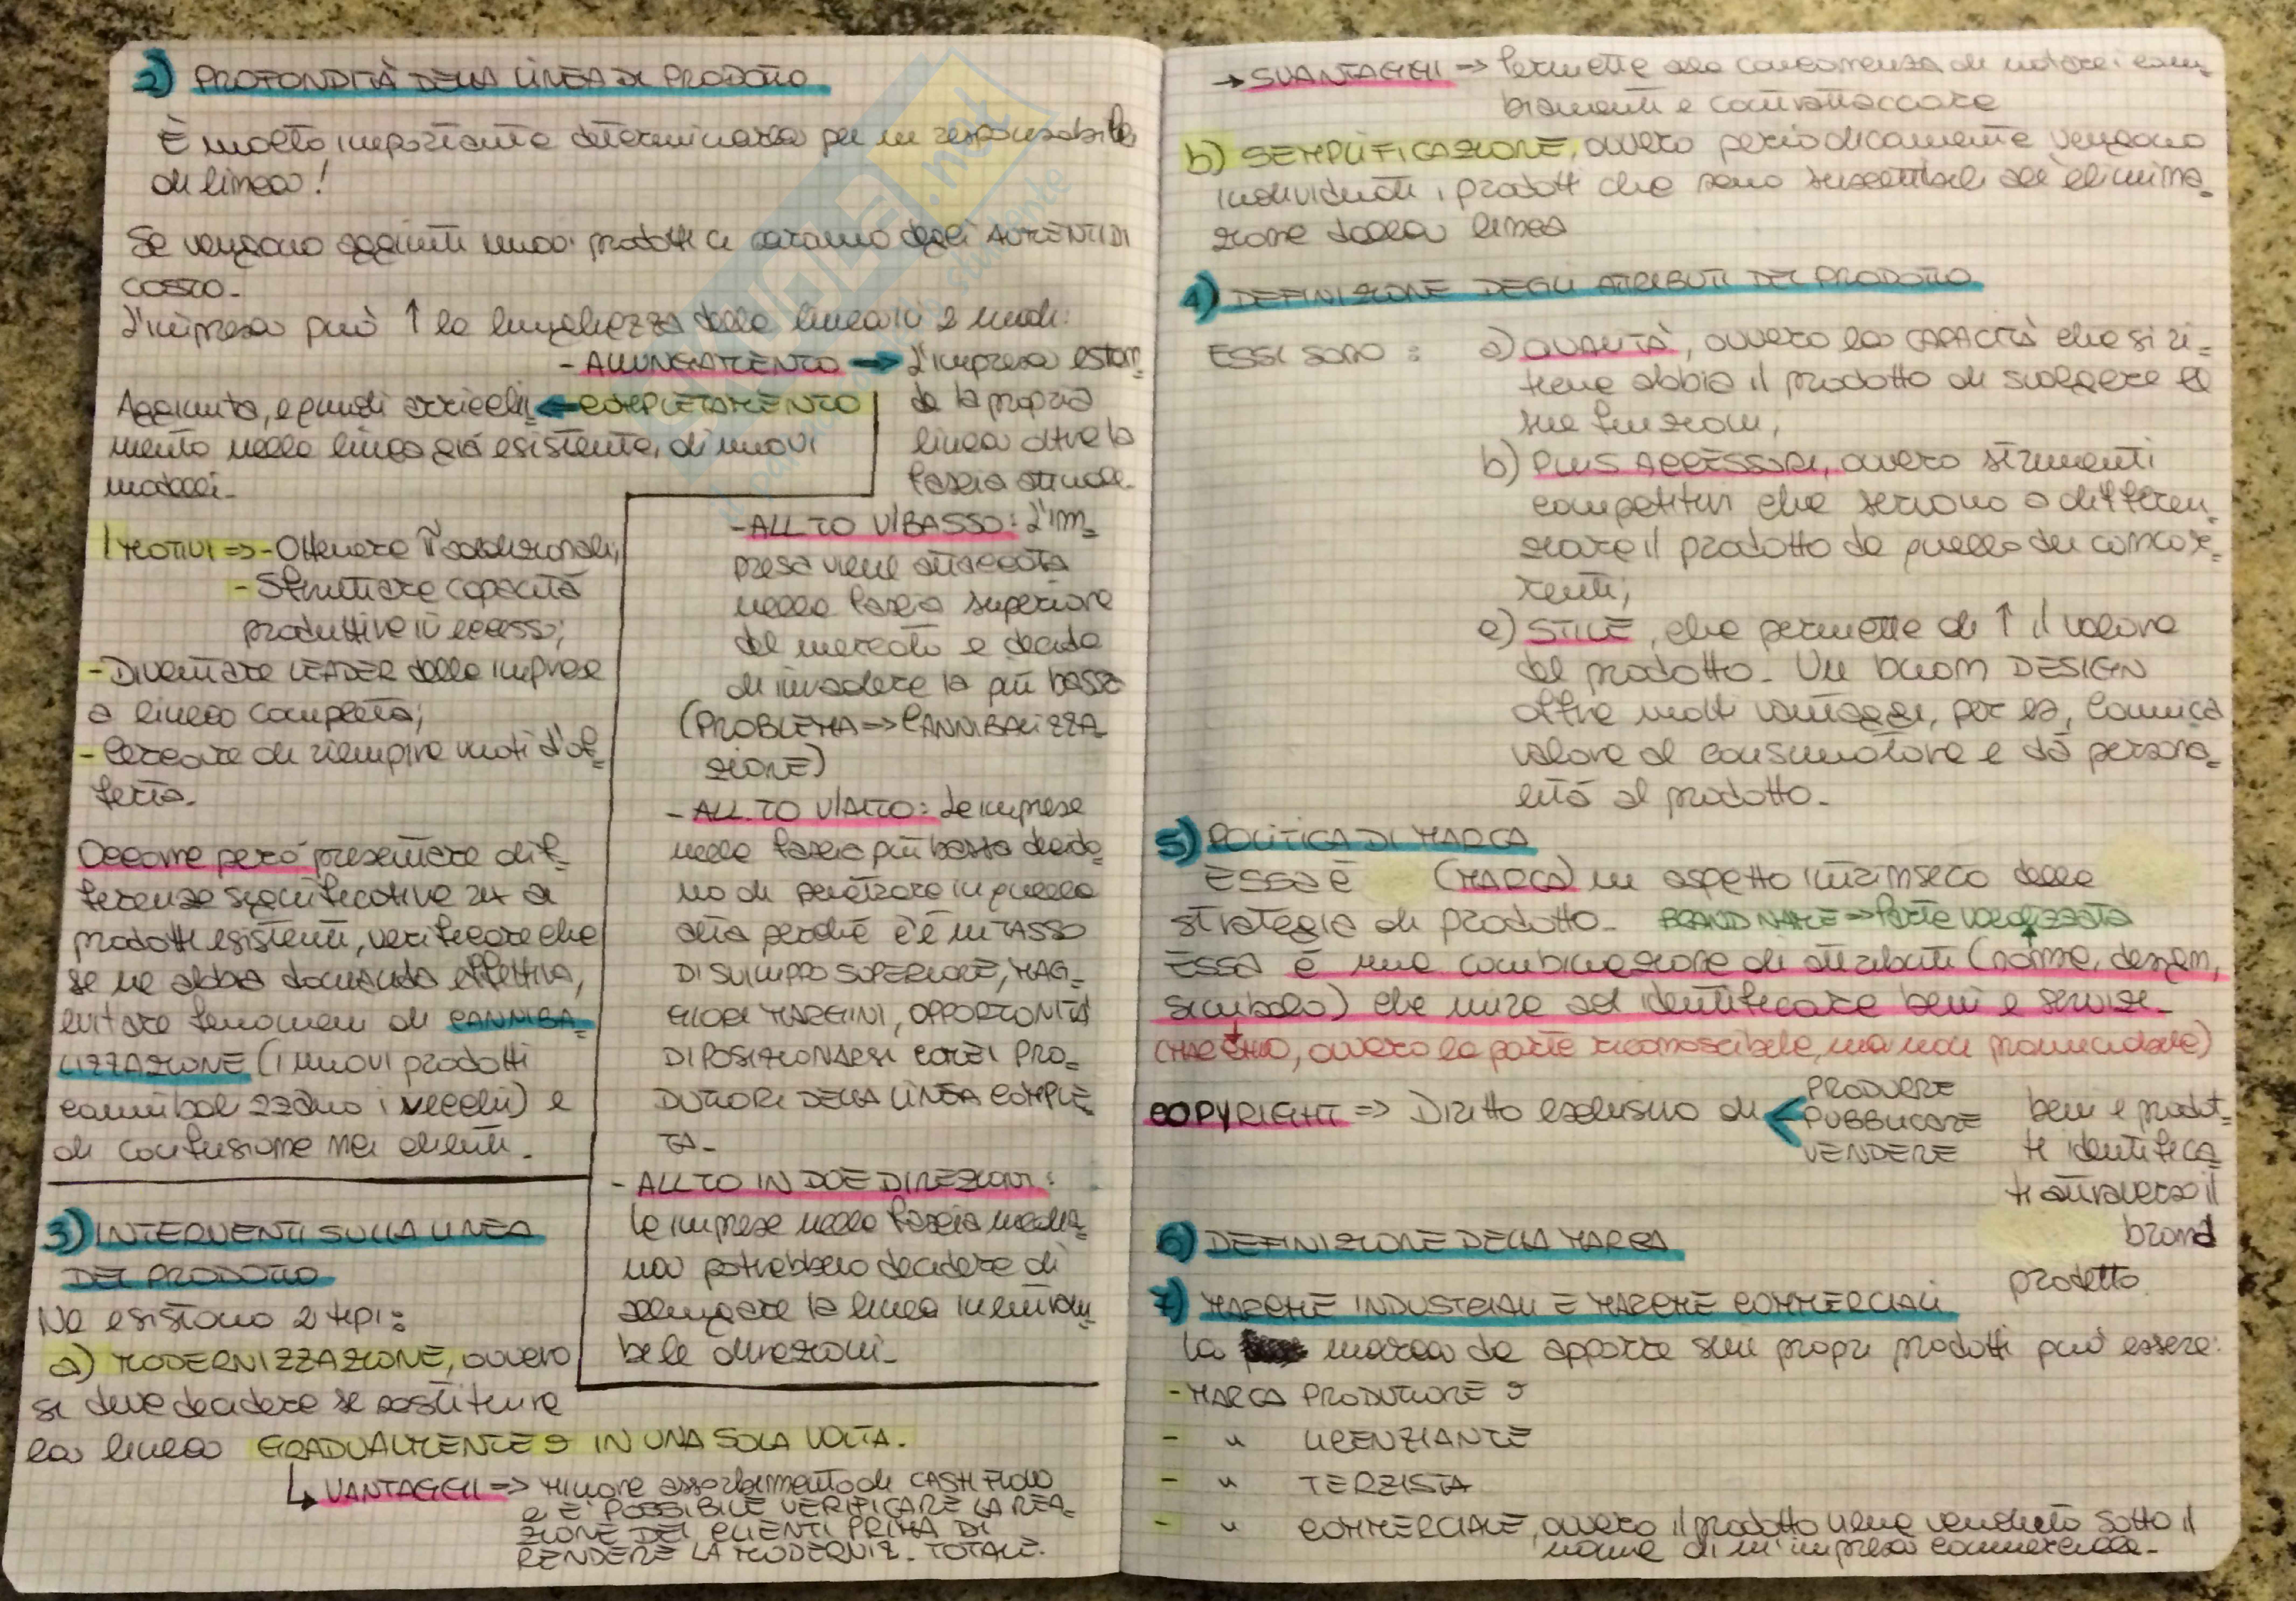 2) PROFONDITÀ DELLA LINEA DI PRODOTTO
È molto importante determinarla per un responsabile
di linea!
Se vengono aggiunti nuovi prodotti ci saranno degli AUMENTI DI
COSTO.
L'impresa può ↑ la lunghezza della linea in 2 modi:
- ALLUNGAMENTO → L'impresa esten=
de la propria
linea oltre la
fascia attuale.
Aggiunta, e quindi arricchi= ← COMPLETAMENTO
mento nella linea già esistente, di nuovi
modelli.
I MOTIVI => - Ottenere π addizionali;
- Sfruttare capacità
produttive in eccesso;
- Diventare LEADER delle imprese
a linea completa;
- Cercare di riempire vuoti d'of=
ferta.
Occorre però presentare dif=
ferenze significative rx ai
prodotti esistenti, verificare che
se ne abbia domanda effettiva,
evitare fenomeni di CANNIBA=
LIZZAZIONE (i nuovi prodotti
cannibalizzano i vecchi) e
di confusione nei clienti.
- ALL.TO V/BASSO: L'im=
presa viene attaccata
nella fascia superiore
del mercato e decide
di invadere la più bassa
(PROBLEMA => CANNIBALIZZA
ZIONE)
- ALL.TO V/ALTO: Le imprese
nella fascia più bassa decido=
no di penetrare in quella
alta perché c'è un TASSO
DI SVILUPPO SUPERIORE, MAG=
GIORI MARGINI, OPPORTUNITÀ
DI POSIZIONARSI COME I PRO=
DUTTORI DELLA LINEA COMPLE=
TA.
- ALL.TO IN DUE DIREZIONI:
Le imprese nella fascia media
potrebbero decidere di
allungare la linea in entram=
be le direzioni.
3) INTERVENTI SULLA LINEA
DEL PRODOTTO
Ne esistono 2 tipi:
a) MODERNIZZAZIONE, ovvero
si deve decidere se sostituire
la linea GRADUALMENTE o IN UNA SOLA VOLTA.
↳ VANTAGGI => Minore assorbimento di CASH FLOW
e È POSSIBILE VERIFICARE LA REA=
ZIONE DEI CLIENTI PRIMA DI
RENDERE LA MODERNIZ. TOTALE.
→ SVANTAGGI => Permette alla concorrenza di notare i cam=
biamenti e contrattaccare
b) SEMPLIFICAZIONE, ovvero periodicamente vengono
individuati i prodotti che sono suscettibili all'elimina=
zione dalla linea
4) DEFINIZIONE DEGLI ATTRIBUTI DEL PRODOTTO
ESSI SONO: a) QUALITÀ, ovvero la CAPACITÀ che si ri=
tiene abbia il prodotto di svolgere le
sue funzioni,
b) PLUS ACCESSORI, ovvero strumenti
competitivi che servono a differen=
ziare il prodotto da quello dei concor=
renti;
c) STILE, che permette di ↑ il valore
del prodotto. Un buon DESIGN
offre molti vantaggi, per es, comunica
valore al consumatore e dà persona=
lità al prodotto.
5) POLITICA DI MARCA
ESSA È (MARCA) un aspetto intrinseco della
strategia di prodotto. BRAND NAME => Parte vocalizzata
ESSA è una combinazione di attributi (nome, design,
simbolo) che mira ad identificare beni e servizi.
(MARCHIO, ovvero la parte riconoscibile, ma non pronunciabile)
COPYRIGHT => Diritto esclusivo di < PRODURRE
PUBBLICARE
VENDERE
beni e prodot=
ti identifica=
ti attraverso il
brand
protetto.
6) DEFINIZIONE DELLA MARCA
7) MARCHE INDUSTRIALI E MARCHE COMMERCIALI
La marca da apporre sui propri prodotti può essere:
- MARCA PRODUTTORE o
- " LICENZIANTE
- " TERZISTA
- " COMMERCIALE, ovvero il prodotto viene venduto sotto il
nome di un'impresa commerciale.